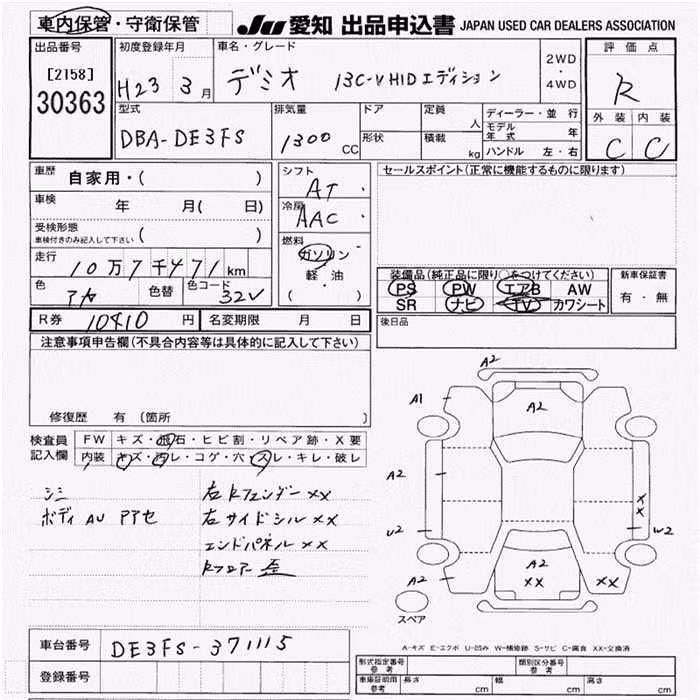 車内保管・守衛保管
JU 愛知 出品申込書 JAPAN USED CAR DEALERS ASSOCIATION
出品番号
[2158]
30363
初度登録年月
H23 3月
車名・グレード
デミオ 13C-V HIDエディション
2WD
・
4WD
評価点
R
外装 内装
C C
型式
DBA-DE3FS
排気量
1300 CC
ドア
形状
定員 人
積載 kg
ディーラー・並行
モデル年式 年
ハンドル 左・右
車歴 自家用・( )
車検 年 月( 日)
受検形態
車検付きのみ記入して下さい ( )
走行 10万7千471km
色 アカ 色替 色コード 32V
シフト
AT
冷房
AAC
燃料
ガソリン
軽・油
( ・ )
セールスポイント(正常に機能するものに限ります)
装備品(純正品に限り○をつけてください)
PS PW エアB AW
SR ナビ TV カワシート
新車保証書
有・無
R券 10410 円 名変期限 月 日
後日品
注意事項申告欄(不具合内容等は具体的に記入して下さい)
修復歴 有 (箇所 )
検査員
記入欄
FW キズ・飛石・ヒビ割・リペア跡・X要
内装 キズ・汚レ・コゲ・穴・スレ・キレ・破レ
シミ
ボディ AU アアセ
右Rフェンダー××
右サイドシル××
エンドパネル××
Rフロアー 歪
A2
A1
A2
A2
U2
A2
××
W2
A2
××
××
スペア
A-キズ E-エクボ U-凹み W-補修跡 S-サビ C-腐食 XX-交換済
車台番号 DE3FS-371115
登録番号
型式指定番号
参考
類別区分番号
参考
車庫証明用
参考
長さ cm 幅 cm 高さ cm